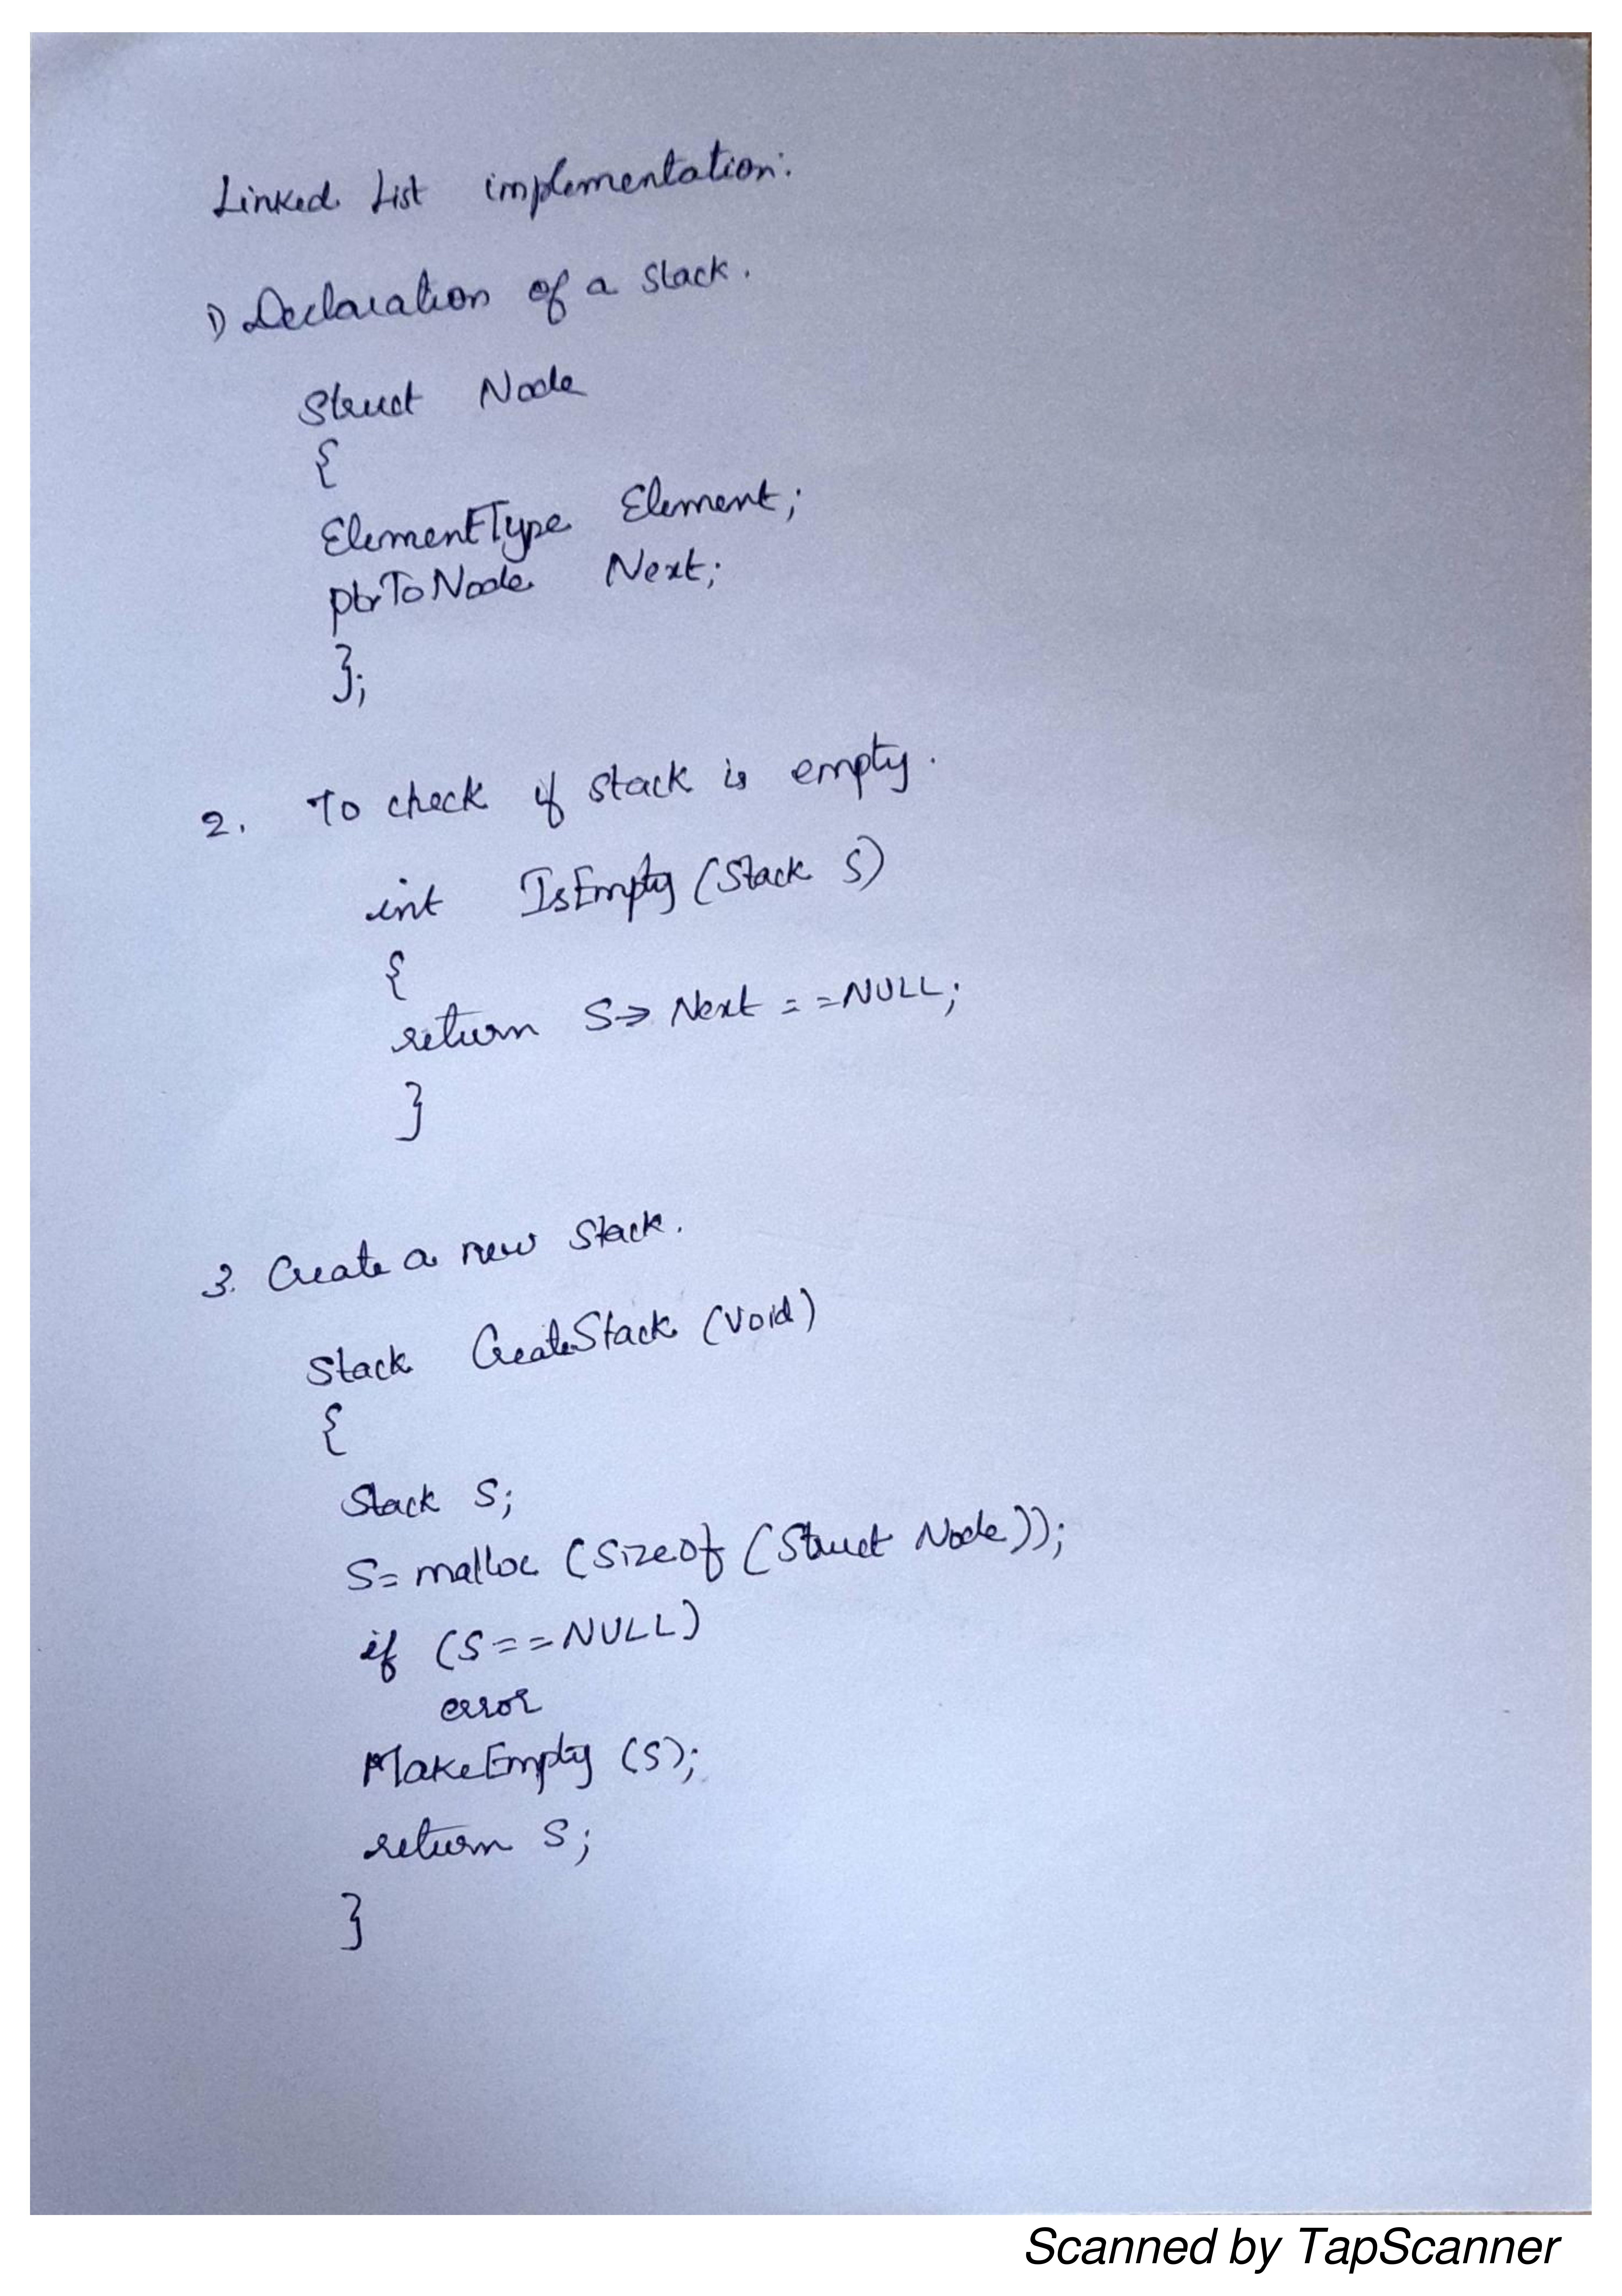 Linked List implementation:
1) Declaration of a stack.
Struct Node
{
ElementType Element;
ptrToNode Next;
};
2. To check if stack is empty.
int IsEmpty (Stack S)
{
return S→ Next == NULL;
}
3. Create a new stack.
Stack CreateStack (void)
{
Stack S;
S= malloc (Sizeof (Struct Node));
if (S==NULL)
error
MakeEmpty (S);
return S;
}
Scanned by TapScanner